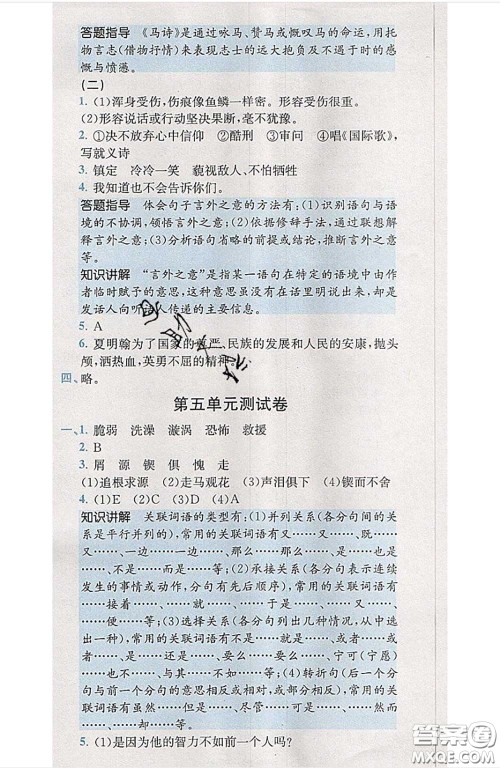 答题指导 《马诗》是通过咏马、赞马或慨叹马的命运,用托
物言志(借物抒情)来表现志士的远大抱负及不遇于时的感
慨与愤懑。
(二)
1. (1)浑身受伤,伤痕像鱼鳞一样密。形容受伤很重。
(2)形容说话或行动坚决果断,毫不犹豫。
2. ①决不放弃心中信仰 ②酷刑 ③审问 ④唱《国际歌》,
写就义诗
3. 镇定 冷冷一笑 藐视敌人、不怕牺牲
4. 我知道也不会告诉你们。
答题指导 体会句子言外之意的方法有:(1)识别语句与语
境的不协调,领悟言外之意;(2)依据修辞手法,通过联想解
释言外之意;(3)分析语句省略的前提或结论,推断言外之
意等。
知识讲解 “言外之意”是指某一语句在特定的语境中由作
者临时赋予的意思,这种意思虽没有明白说出来,却是
发话人向听话人传递的主要信息。
5. A
6. 夏明翰为了国家的尊严,民族的发展和人民的安康,抛头
颅,洒热血,英勇不屈的精神。
四、略。
第五单元测试卷
一、1. 脆弱 洗澡 漩涡 恐怖 救援
2. B
3. 屑 源 锲 俱 愧 走
(1)追根求源 (2)走马观花 (3)声泪俱下 (4)锲而不舍
4. (1)E (2)D (3)C (4)A
知识讲解 关联词语的类型有:(1)并列关系(各分句间的关
系是平行并列的),常用的关联词语有又……又……、既……
又……、一边……一边……、那么……那么……、是……也是
……、不是……而是……等;(2)承接关系(各分句表示连续
发生的事情或动作,分句有先后顺序),常用的关联词语有
……接着……、……就……、……于是……、……又……、
……便……等;(3)选择关系(各分句列出几种情况,从中选
出一种),常用的关联词语有不是……就是……、或者……或
者……、是……还是……、要么……要么……、宁可(宁愿)
……也不……、与其……不如……等;(4)转折句(后一个分
句与前一个分句的意思相反或相对,或部分相反),常用的关
联词语有虽然……但是……、尽管……还……、……然而
……、……却……等。
5. (1)是因为他的智力不如前一个人吗?
答案圈
MXQE.COM